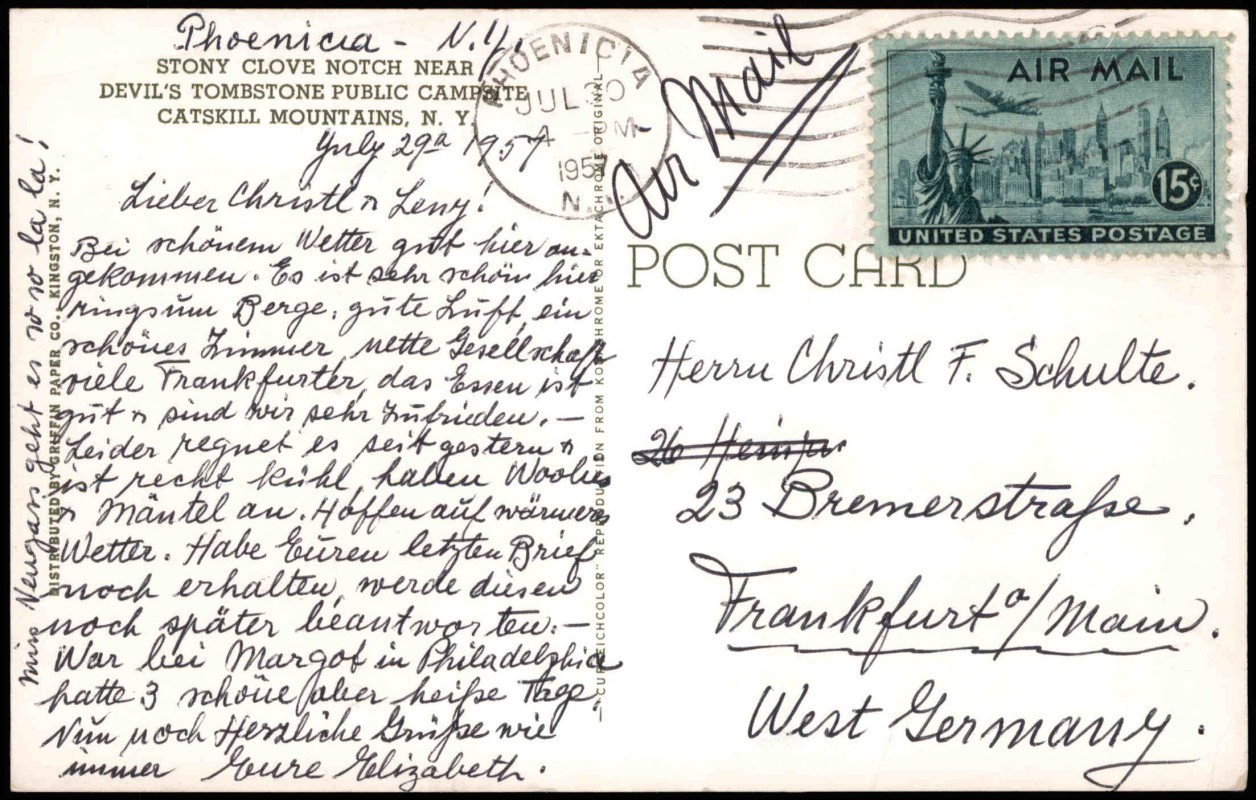 Phoenicia - N.Y.
STONY CLOVE NOTCH NEAR
DEVIL'S TOMBSTONE PUBLIC CAMPSITE
CATSKILL MOUNTAINS, N. Y.
July 29a 1957
Lieber Christl & Leny!
Bei schönem Wetter gut hier an-
gekommen. Es ist sehr schön hier
ringsum Berge, gute Luft, ein
schönes Zimmer, nette Gesellschaft
viele Frankfurter, das Essen ist
gut & sind wir sehr zufrieden. —
Leider regnet es seit gestern &
ist recht kühl, haben
& Mäntel an. Hoffen auf wärmeres
Wetter. Habe Euren letzten Brief
noch erhalten, werde diesen
noch später beantworten. —
War bei Margot in Philadelphia
hatte 3 schöne aber heiße Tage
Nun noch Herzliche Grüße wie
immer Eure Elizabeth.
Miss geht es so so la la!
DISTRIBUTED BY GRIFFIN PAPER CO., KINGSTON, N. Y.
"CURTEICHCOLOR" REPRODUCTION FROM KODACHROME OR EKTACHROME ORIGINAL
PHOENICIA
JUL 30
4 - PM
1957
N.Y.
Air Mail
AIR MAIL
15¢
UNITED STATES POSTAGE
POST CARD
Herrn Christl F. Schulte.
26
23 Bremerstraße,
Frankfurt a/Main.
West Germany.